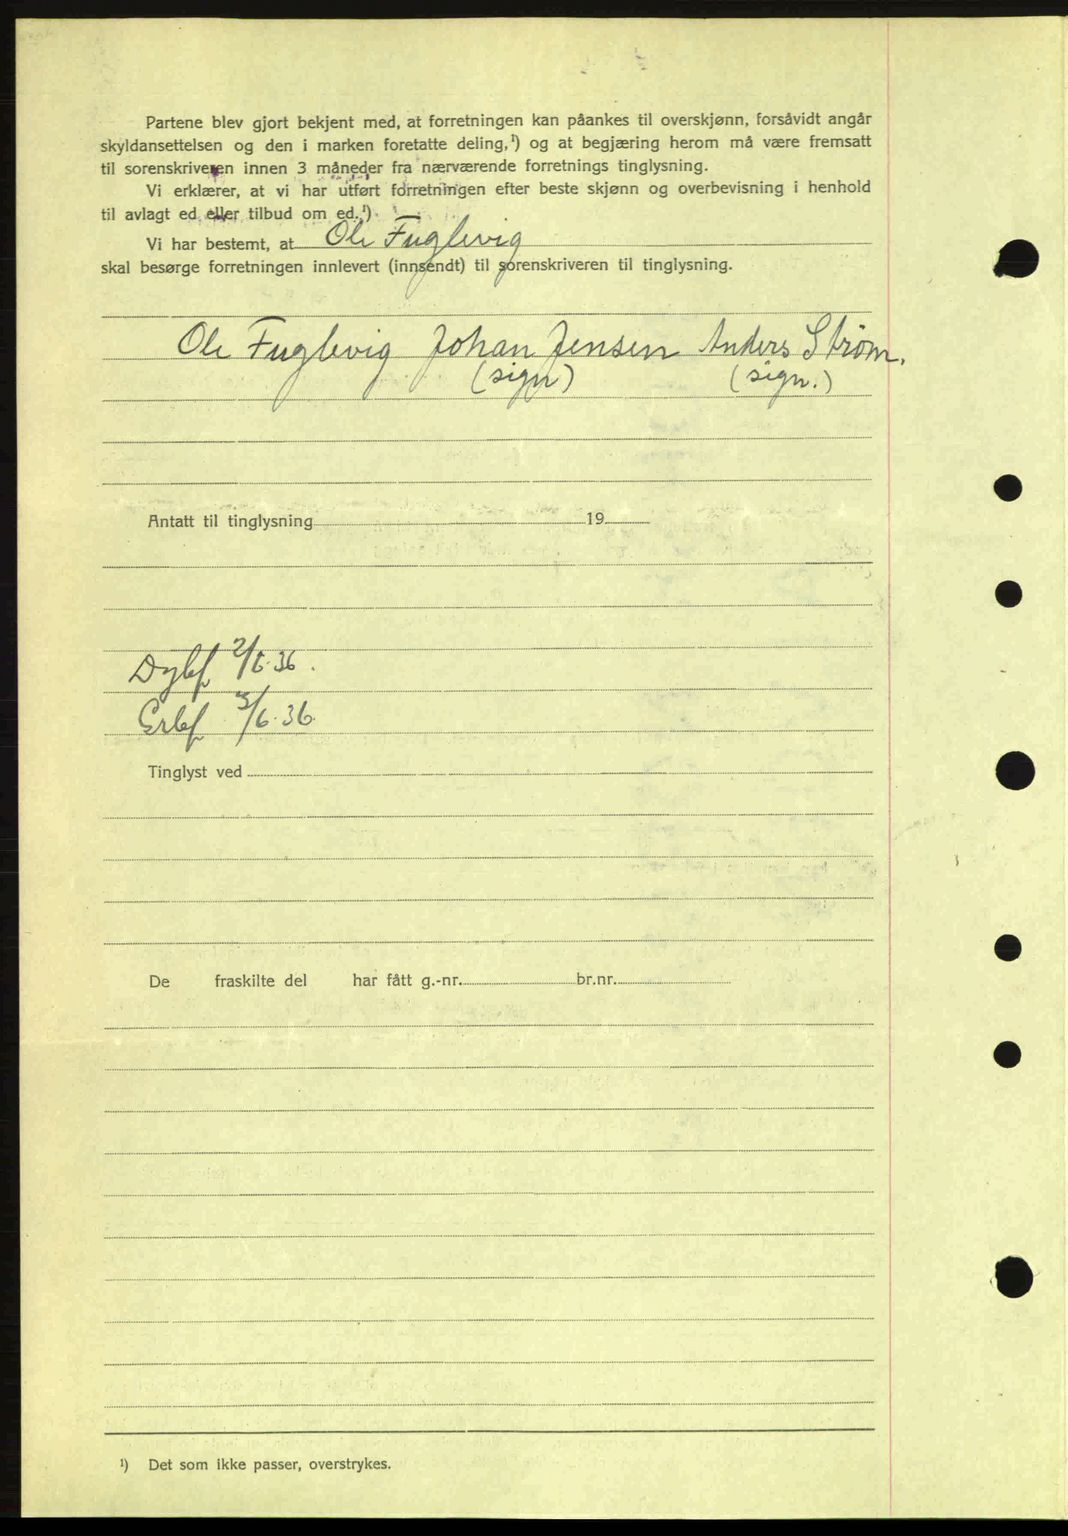 Partene blev gjort bekjent med, at forretningen kan påankes til overskjønn, forsåvidt angår
skyldansettelsen og den i marken foretatte deling,¹) og at begjæring herom må være fremsatt
til sorenskriveren innen 3 måneder fra nærværende forretnings tinglysning.
Vi erklærer, at vi har utført forretningen efter beste skjønn og overbevisning i henhold
til avlagt ed eller tilbud om ed.¹)
Vi har bestemt, at Ole Fuglevig
skal besørge forretningen innlevert (innsendt) til sorenskriveren til tinglysning.
Ole Fuglevig Johan Jensen Anders Strøm.
(sign) (sign.)
Antatt til tinglysning 19
Dgbf 2/6.36.
Erbf 3/6.36.
Tinglyst ved
De fraskilte del har fått g.-nr. br.nr.
¹) Det som ikke passer, overstrykes.